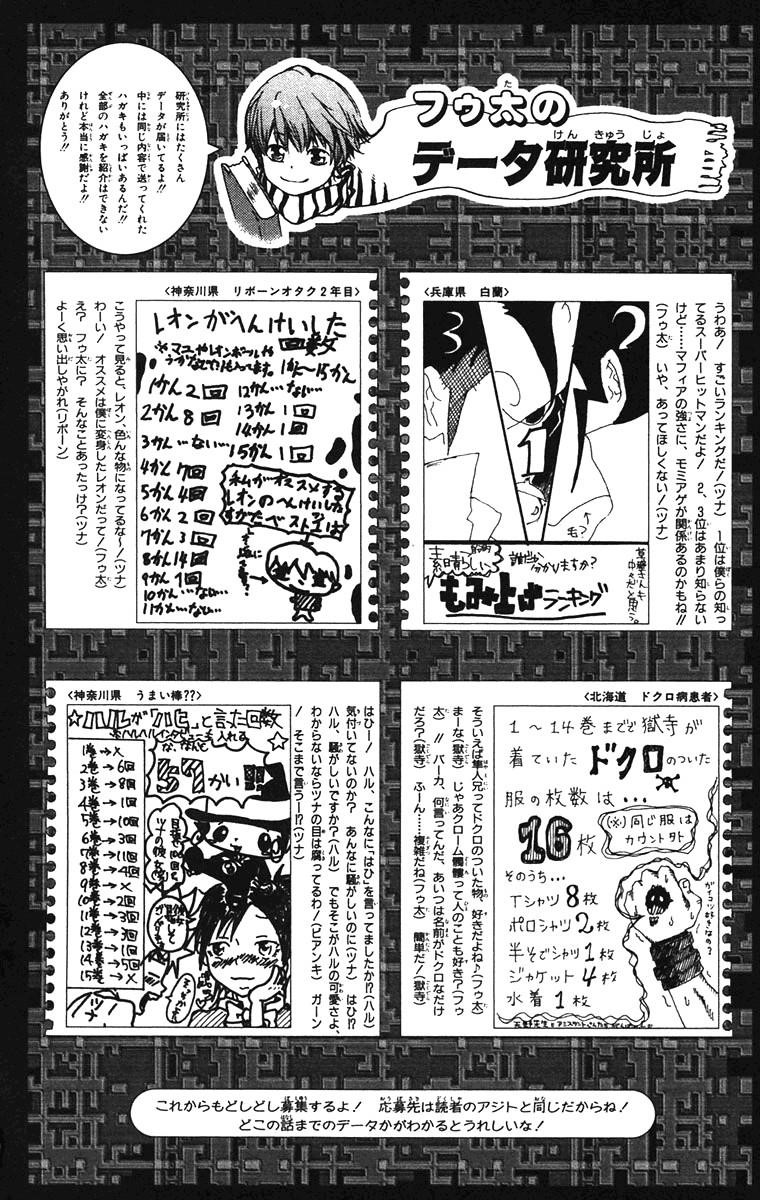 フゥ太の
データ研究所
研究所にはたくさん
データが届いてるよ!!
中には同じ内容で送ってくれた
ハガキもいっぱいあるんだ!!
全部のハガキを紹介はできない
けれど本当に感謝だよ!!
ありがとう!!
〈兵庫県 白蘭〉
うわあ! すごいランキングだ!(ツナ) 1位は僕らの知っ
てるスーパーヒットマンだよ! 2、3位はあまり知らない
けど……マフィアの強さに、モミアゲが関係あるのかもね!!
(フゥ太) いや、あってほしくない!(ツナ)
3
1
2
毛?
素晴らしい
誰だか分かりますか?
もみ上げランキング
〈神奈川県 リボーンオタク2年目〉
レオンがへんけいした
回数
1かん〜15かん
1かん 2回
2かん 8回
3かん…ない…
4かん 7回
5かん 4回
6かん 2回
7かん 3回
8かん 14回
9かん 1回
10かん…ない…
11かん…ない…
12かん…ない…
13かん 1回
14かん 1回
15かん 1回
私がオススメする
レオンのへんけいした
すがたベスト1は
こうやって見ると、レオン、色んな物になってるな〜!(ツナ)
わーい! オススメは僕に変身したレオンだって!(フゥ太)
え? フゥ太に? そんなことあったっけ?(ツナ)
よーく思い出しやがれ(リボーン)
〈北海道 ドクロ病患者〉
1〜14巻までで獄寺が
着ていたドクロのついた
服の枚数は…
16枚
(※)同じ服は
カウント外
そのうち…
Tシャツ8枚
ポロシャツ2枚
半そでシャツ1枚
ジャケット4枚
水着1枚
ガイコツ好きなの?
そういえば隼人兄ってドクロのついた物、好きだよね♪(フゥ太)
まーな(獄寺) じゃあクローム髑髏って人のことも好き?(フゥ
太) !! バーカ、何言ってんだ、あいつは名前がドクロなだけ
だろ?(獄寺) ふーん……複雑だね(フゥ太) 簡単だ!(獄寺)
〈神奈川県 うまい棒??〉
☆ハルが「ハヒ」と言た回数
なんと
57かい!!
1巻→×
2巻→6回
3巻→8回
4巻→1回
5巻→10回
6巻→3回
7巻→11回
8巻→4回
9巻→×
10巻→2回
11巻→3回
12巻→3回
13巻→1回
14巻→5回
15巻→×
ツナ
はひー! ハル、こんなに「はひ」を言ってましたか!?(ハル)
気付いてないのか? あんなに騒がしいのに(ツナ) はひ!?
ハル、騒がしいですか?(ハル) でもそこがハルの可愛さよ、
わからないならツナの目は腐ってるわ!(ビアンキ) ガーン
! そこまで言うー!?(ツナ)
これからもどしどし募集するよ! 応募先は読者のアジトと同じだからね!
どこの話までのデータかがわかるとうれしいな!